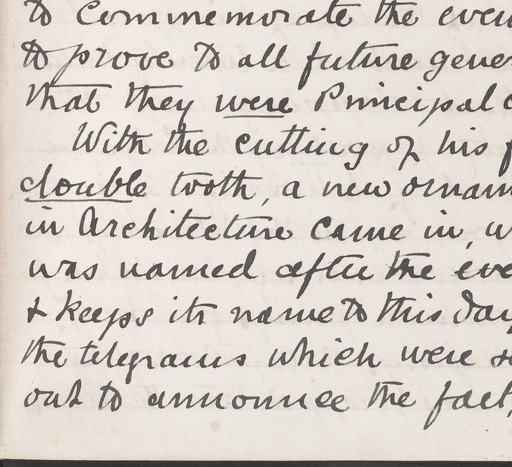 to commemorate the even
to prove to all future gener
that they were Principal
With the cutting of his f
double tooth, a new ornam
in Architecture came in, w
was named after the eve
& keeps its name to this day
the telegrams which were s
out to announce the fact,